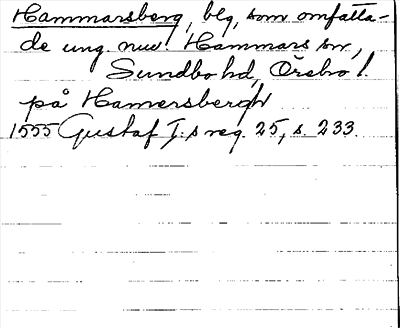 Hammarsberg, blg, som omfatta-
de ung. nuv. Hammars sn,
Sundbo hd, Örebro l.
på Hamersbergh
1555 Gustaf I:s reg. 25, s. 233.